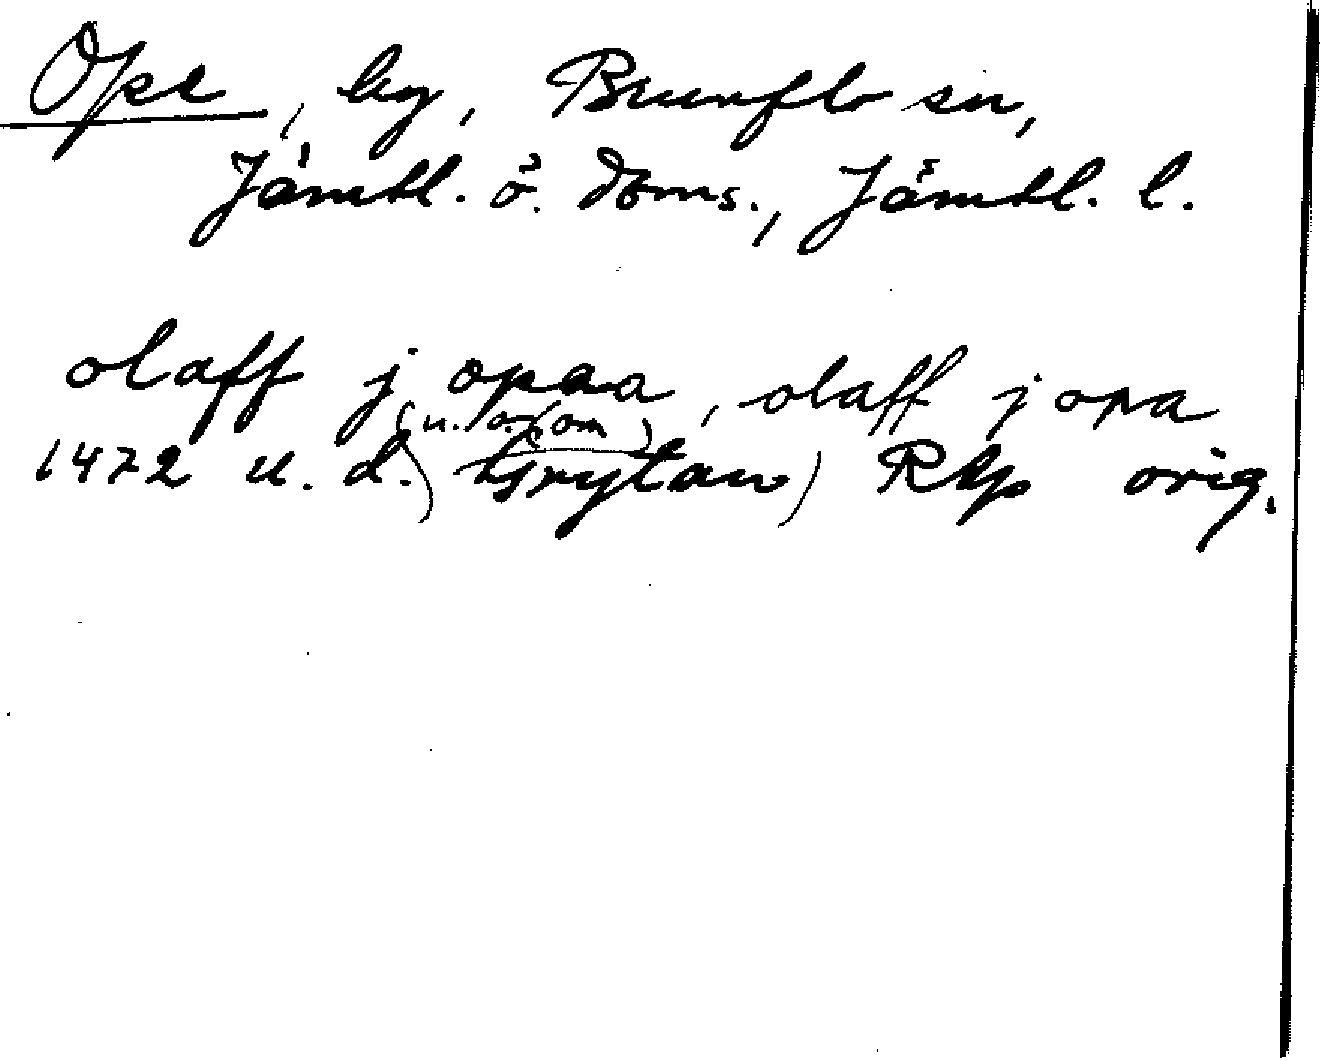 Ope, by, Brunflo sn,
Jämtl. ö. doms., Jämtl. l.
olaff j opaa, olaff j opa
(u. o. om)
1472 u. d. (Grytan) RAp orig.